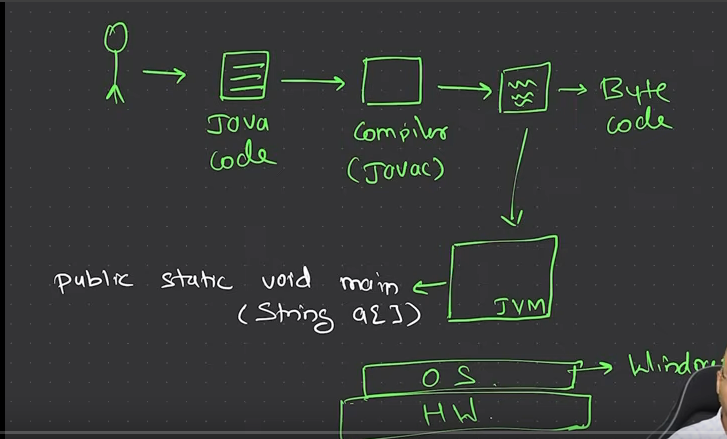 Java
code
Compiler
(Javac)
Byte
code
public static void main
(String a[])
JVM
OS
HW.